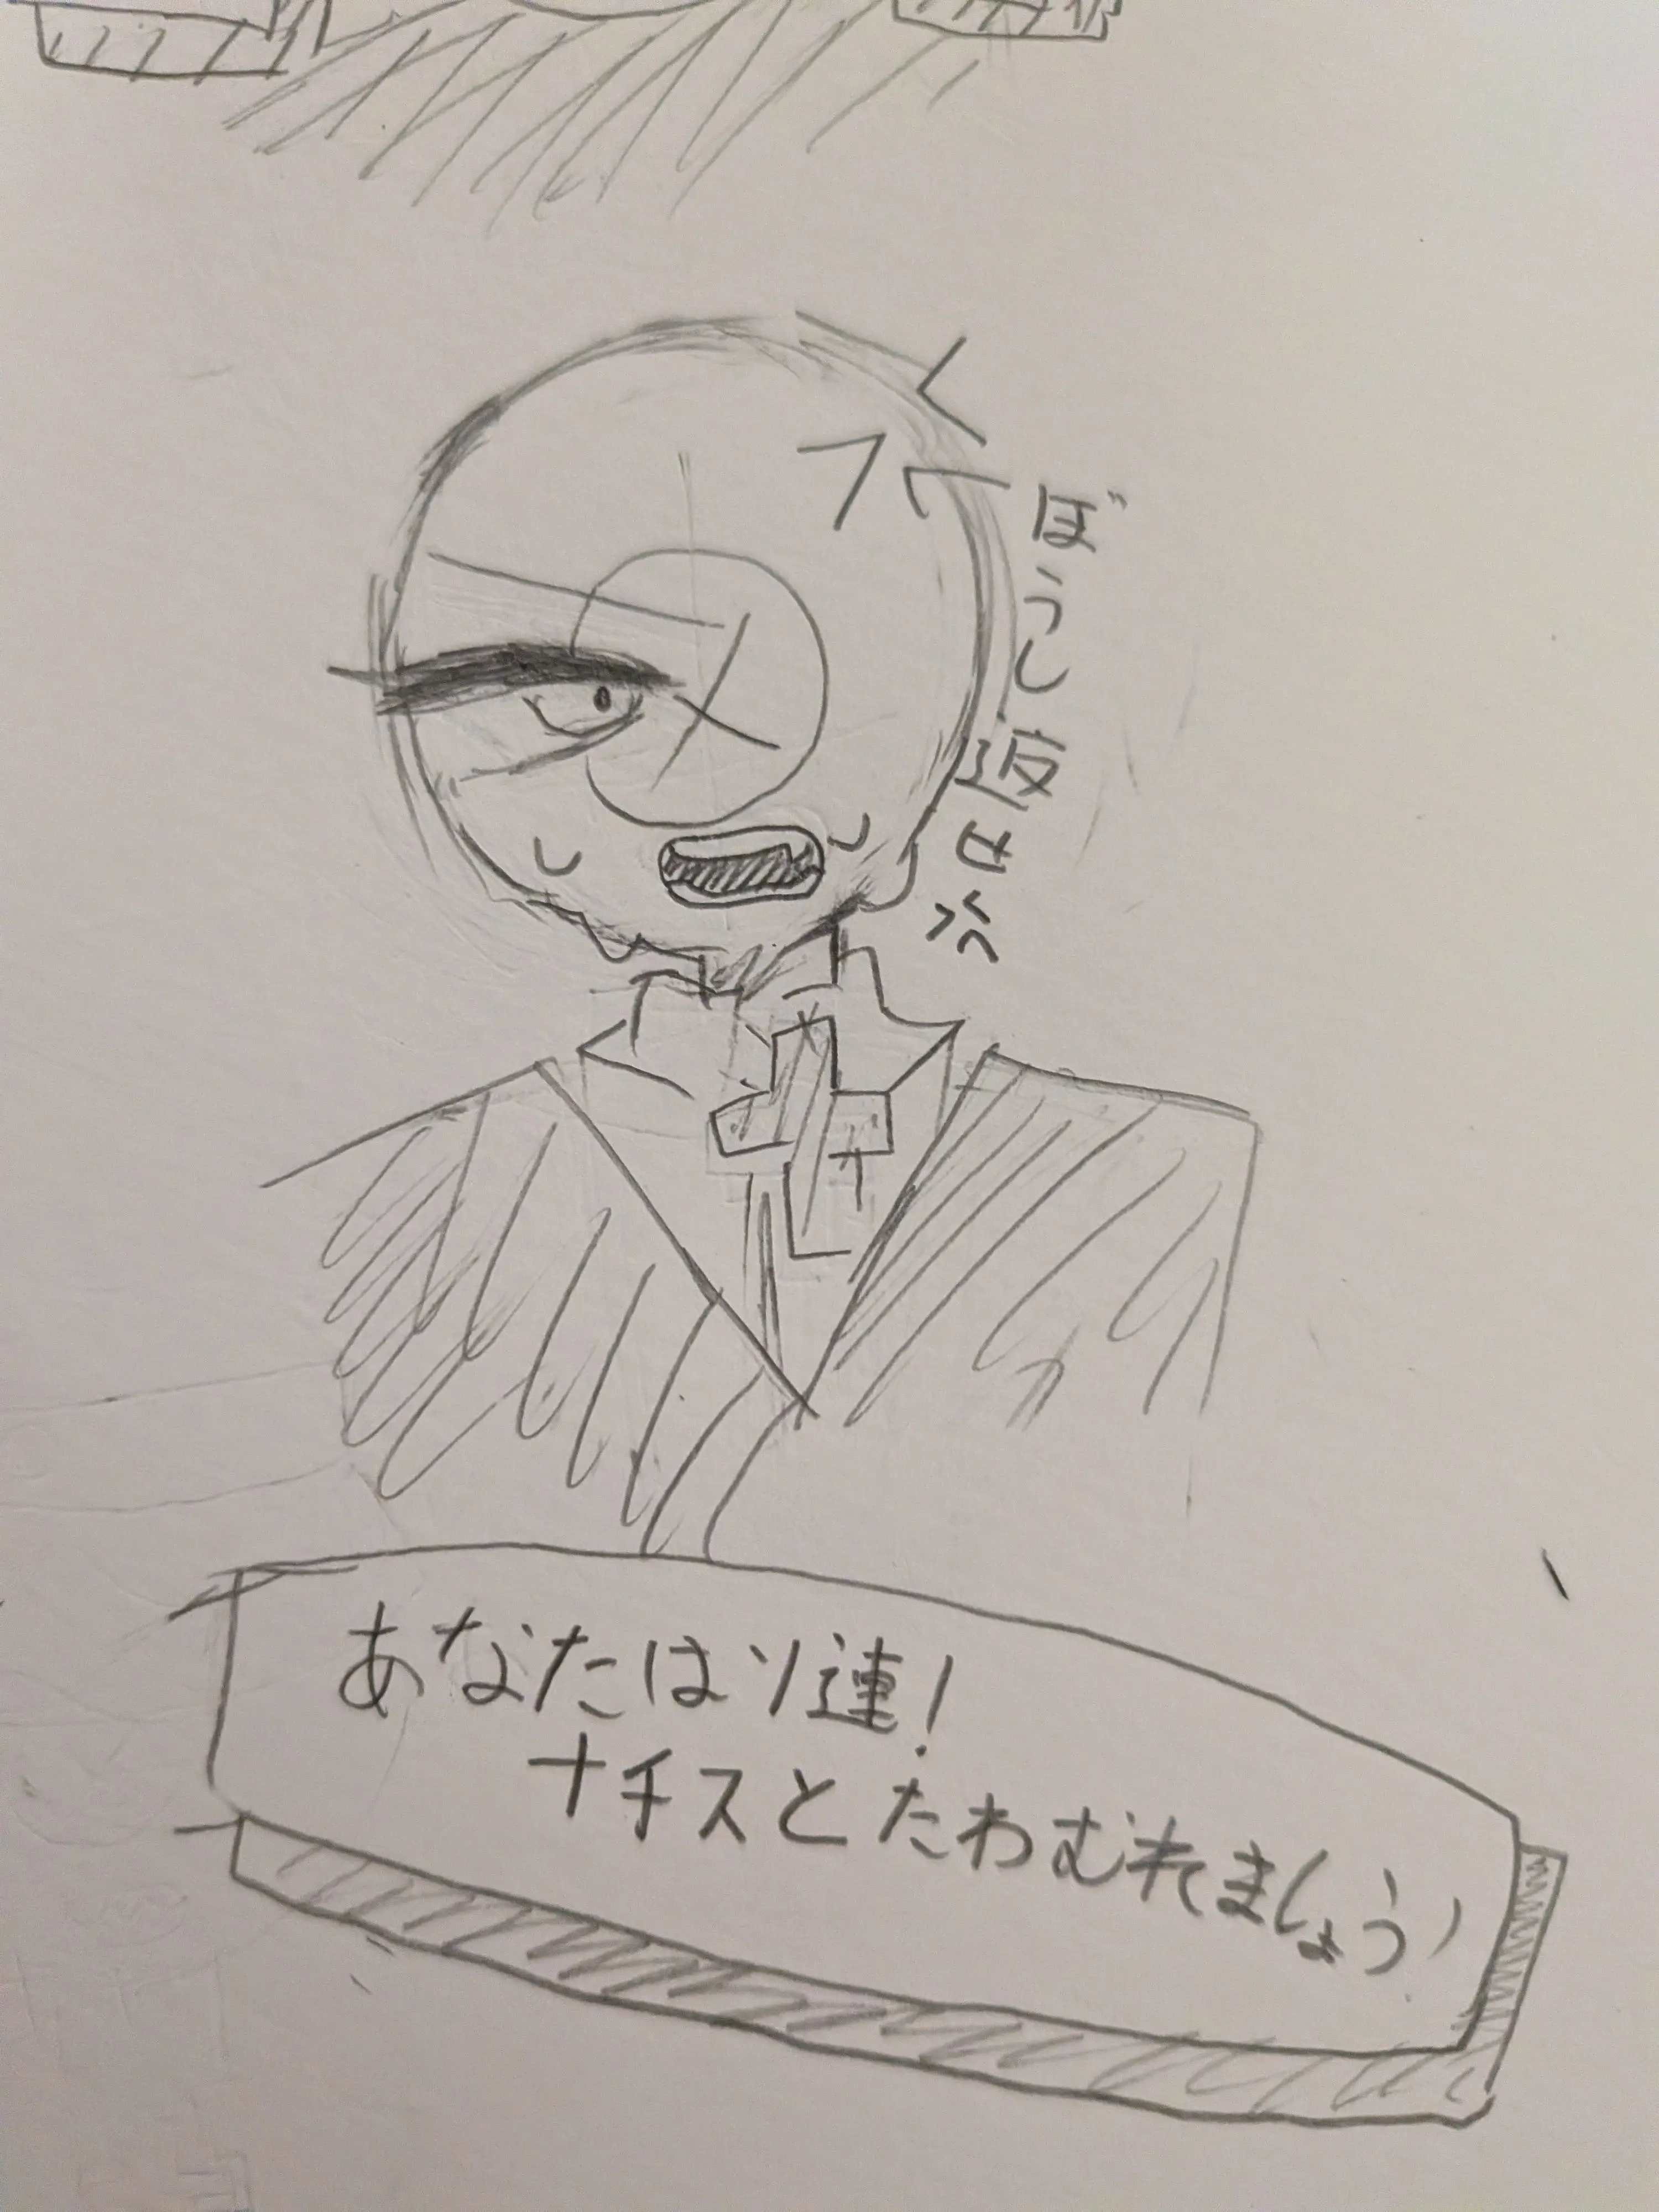 ぼうし返せ
あなたはソ連！
ナチスとたわむれましょう